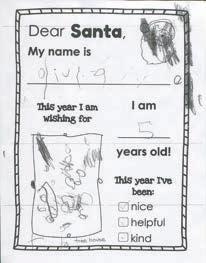 Dear Santa,
My name is
This year I am
wishing for
I am
5
years old!
This year I've
been:
nice
helpful
kind
tree house